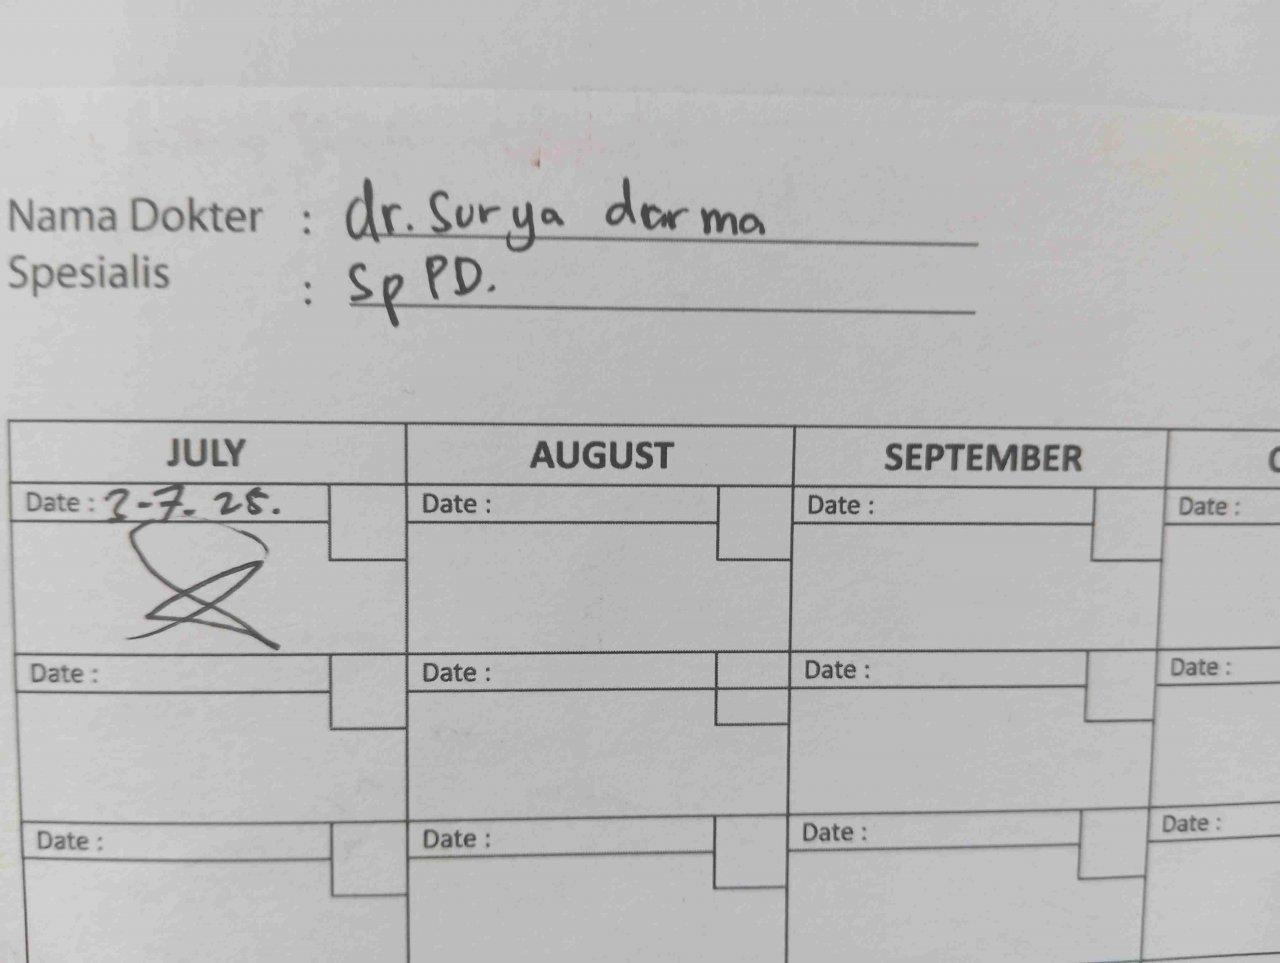 Nama Dokter : dr. Surya darma
Spesialis : Sp PD.
JULY AUGUST SEPTEMBER
Date : 3-7. 25. Date : Date : Date :
Date : Date : Date : Date :
Date : Date : Date : Date :